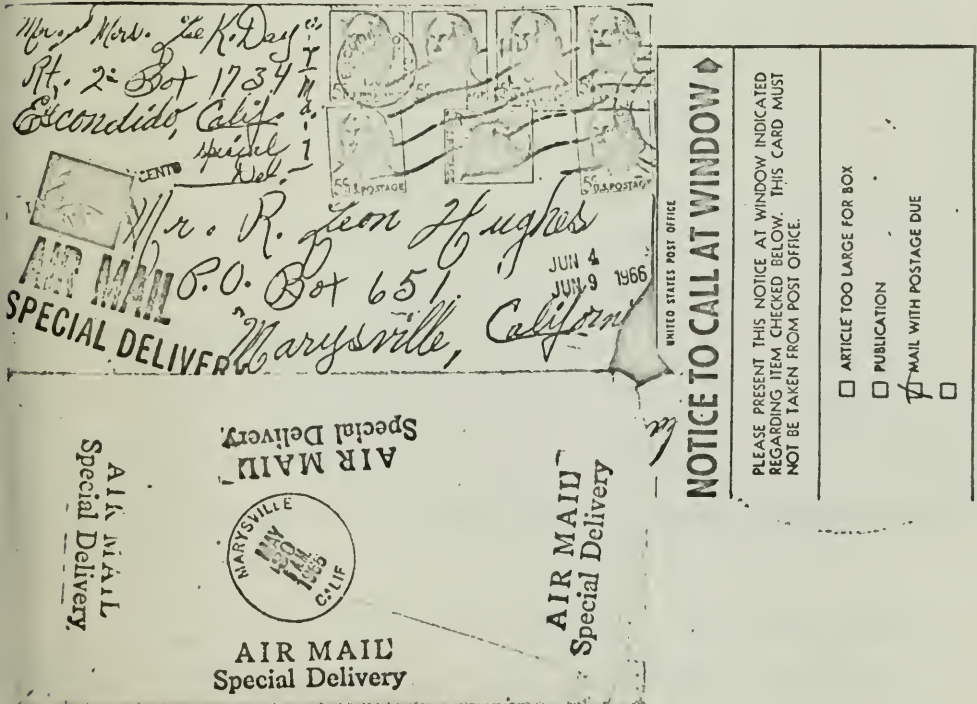 Mr. & Mrs. K. Day
Rt. 2 Box 1734
Escondido, Calif.
special
Del.
5¢ U.S. POSTAGE
5¢ U.S. POSTAGE
CENTS
Mr. R. Leon Hughes
P.O. Box 651
Marysville, Californ
JUN 4
JUN 9 1966
AIR MAIL
SPECIAL DELIVERY
AIR MAIL
Special Delivery.
AIR MAIL
Special Delivery.
MARYSVILLE
MAY
AM
CALIF
AIR MAIL
Special Delivery
AIR MAIL
Special Delivery
UNITED STATES POST OFFICE
NOTICE TO CALL AT WINDOW
PLEASE PRESENT THIS NOTICE AT WINDOW INDICATED
REGARDING ITEM CHECKED BELOW. THIS CARD MUST
NOT BE TAKEN FROM POST OFFICE.
☐ ARTICLE TOO LARGE FOR BOX
☐ PUBLICATION
☑ MAIL WITH POSTAGE DUE
☐